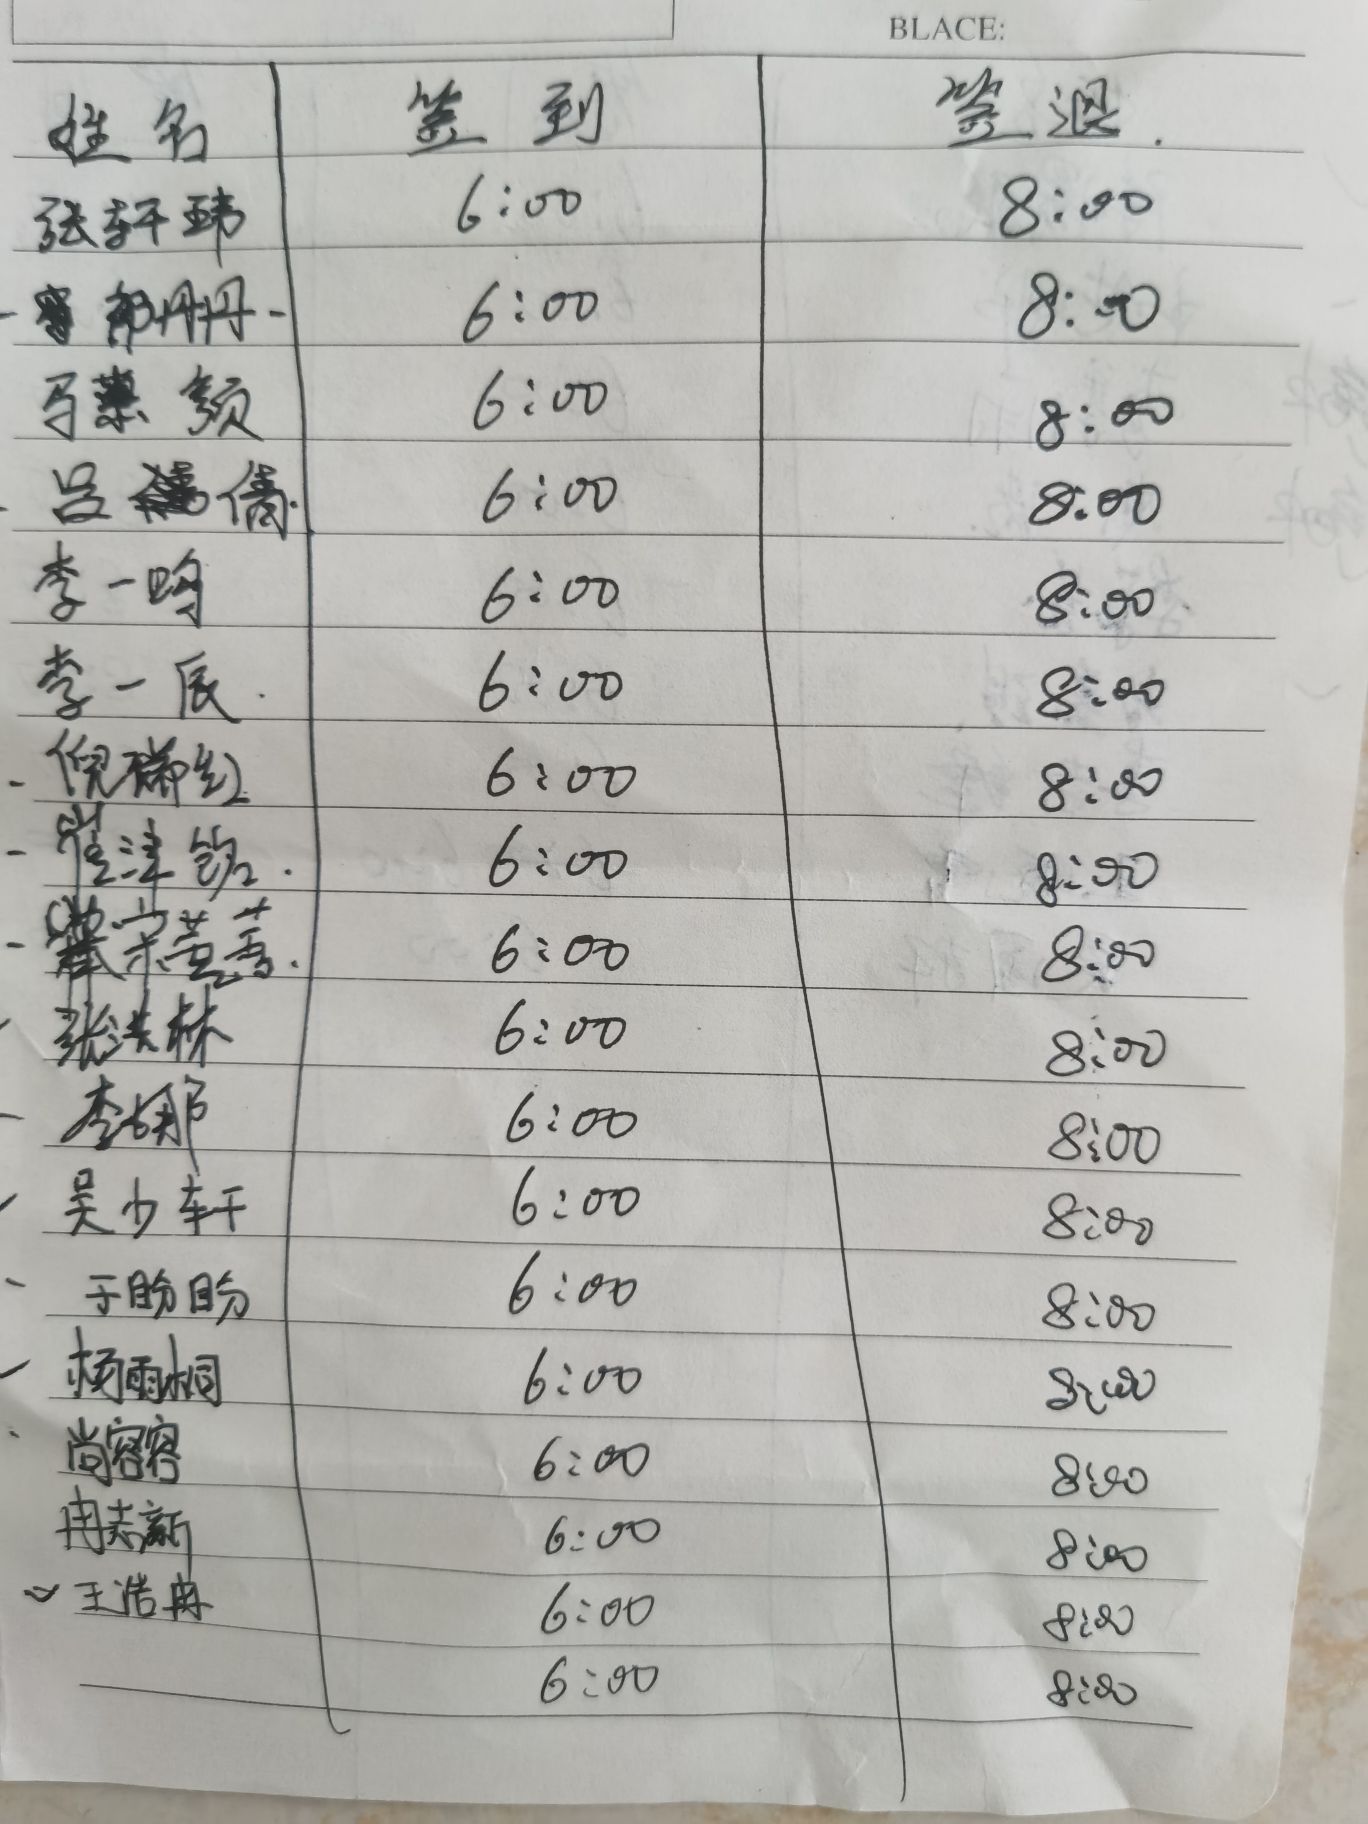 BLACE:
姓名 签到 签退.
张轩玮 6:00 8:00
郭丹丹 6:00 8:00
马 颖 6:00 8:00
吕 倩 6:00 8:00
李一鸣 6:00 8:00
李一辰. 6:00 8:00
倪瑞红 6:00 8:00
崔津铭. 6:00 8:00
宋萱萱. 6:00 8:00
张洪林 6:00 8:00
李娜 6:00 8:00
吴少轩 6:00 8:00
于盼盼 6:00 8:00
杨雨桐 6:00 8:00
尚容容 6:00 8:00
冉志新 6:00 8:00
王浩冉 6:00 8:00
6:00 8:00